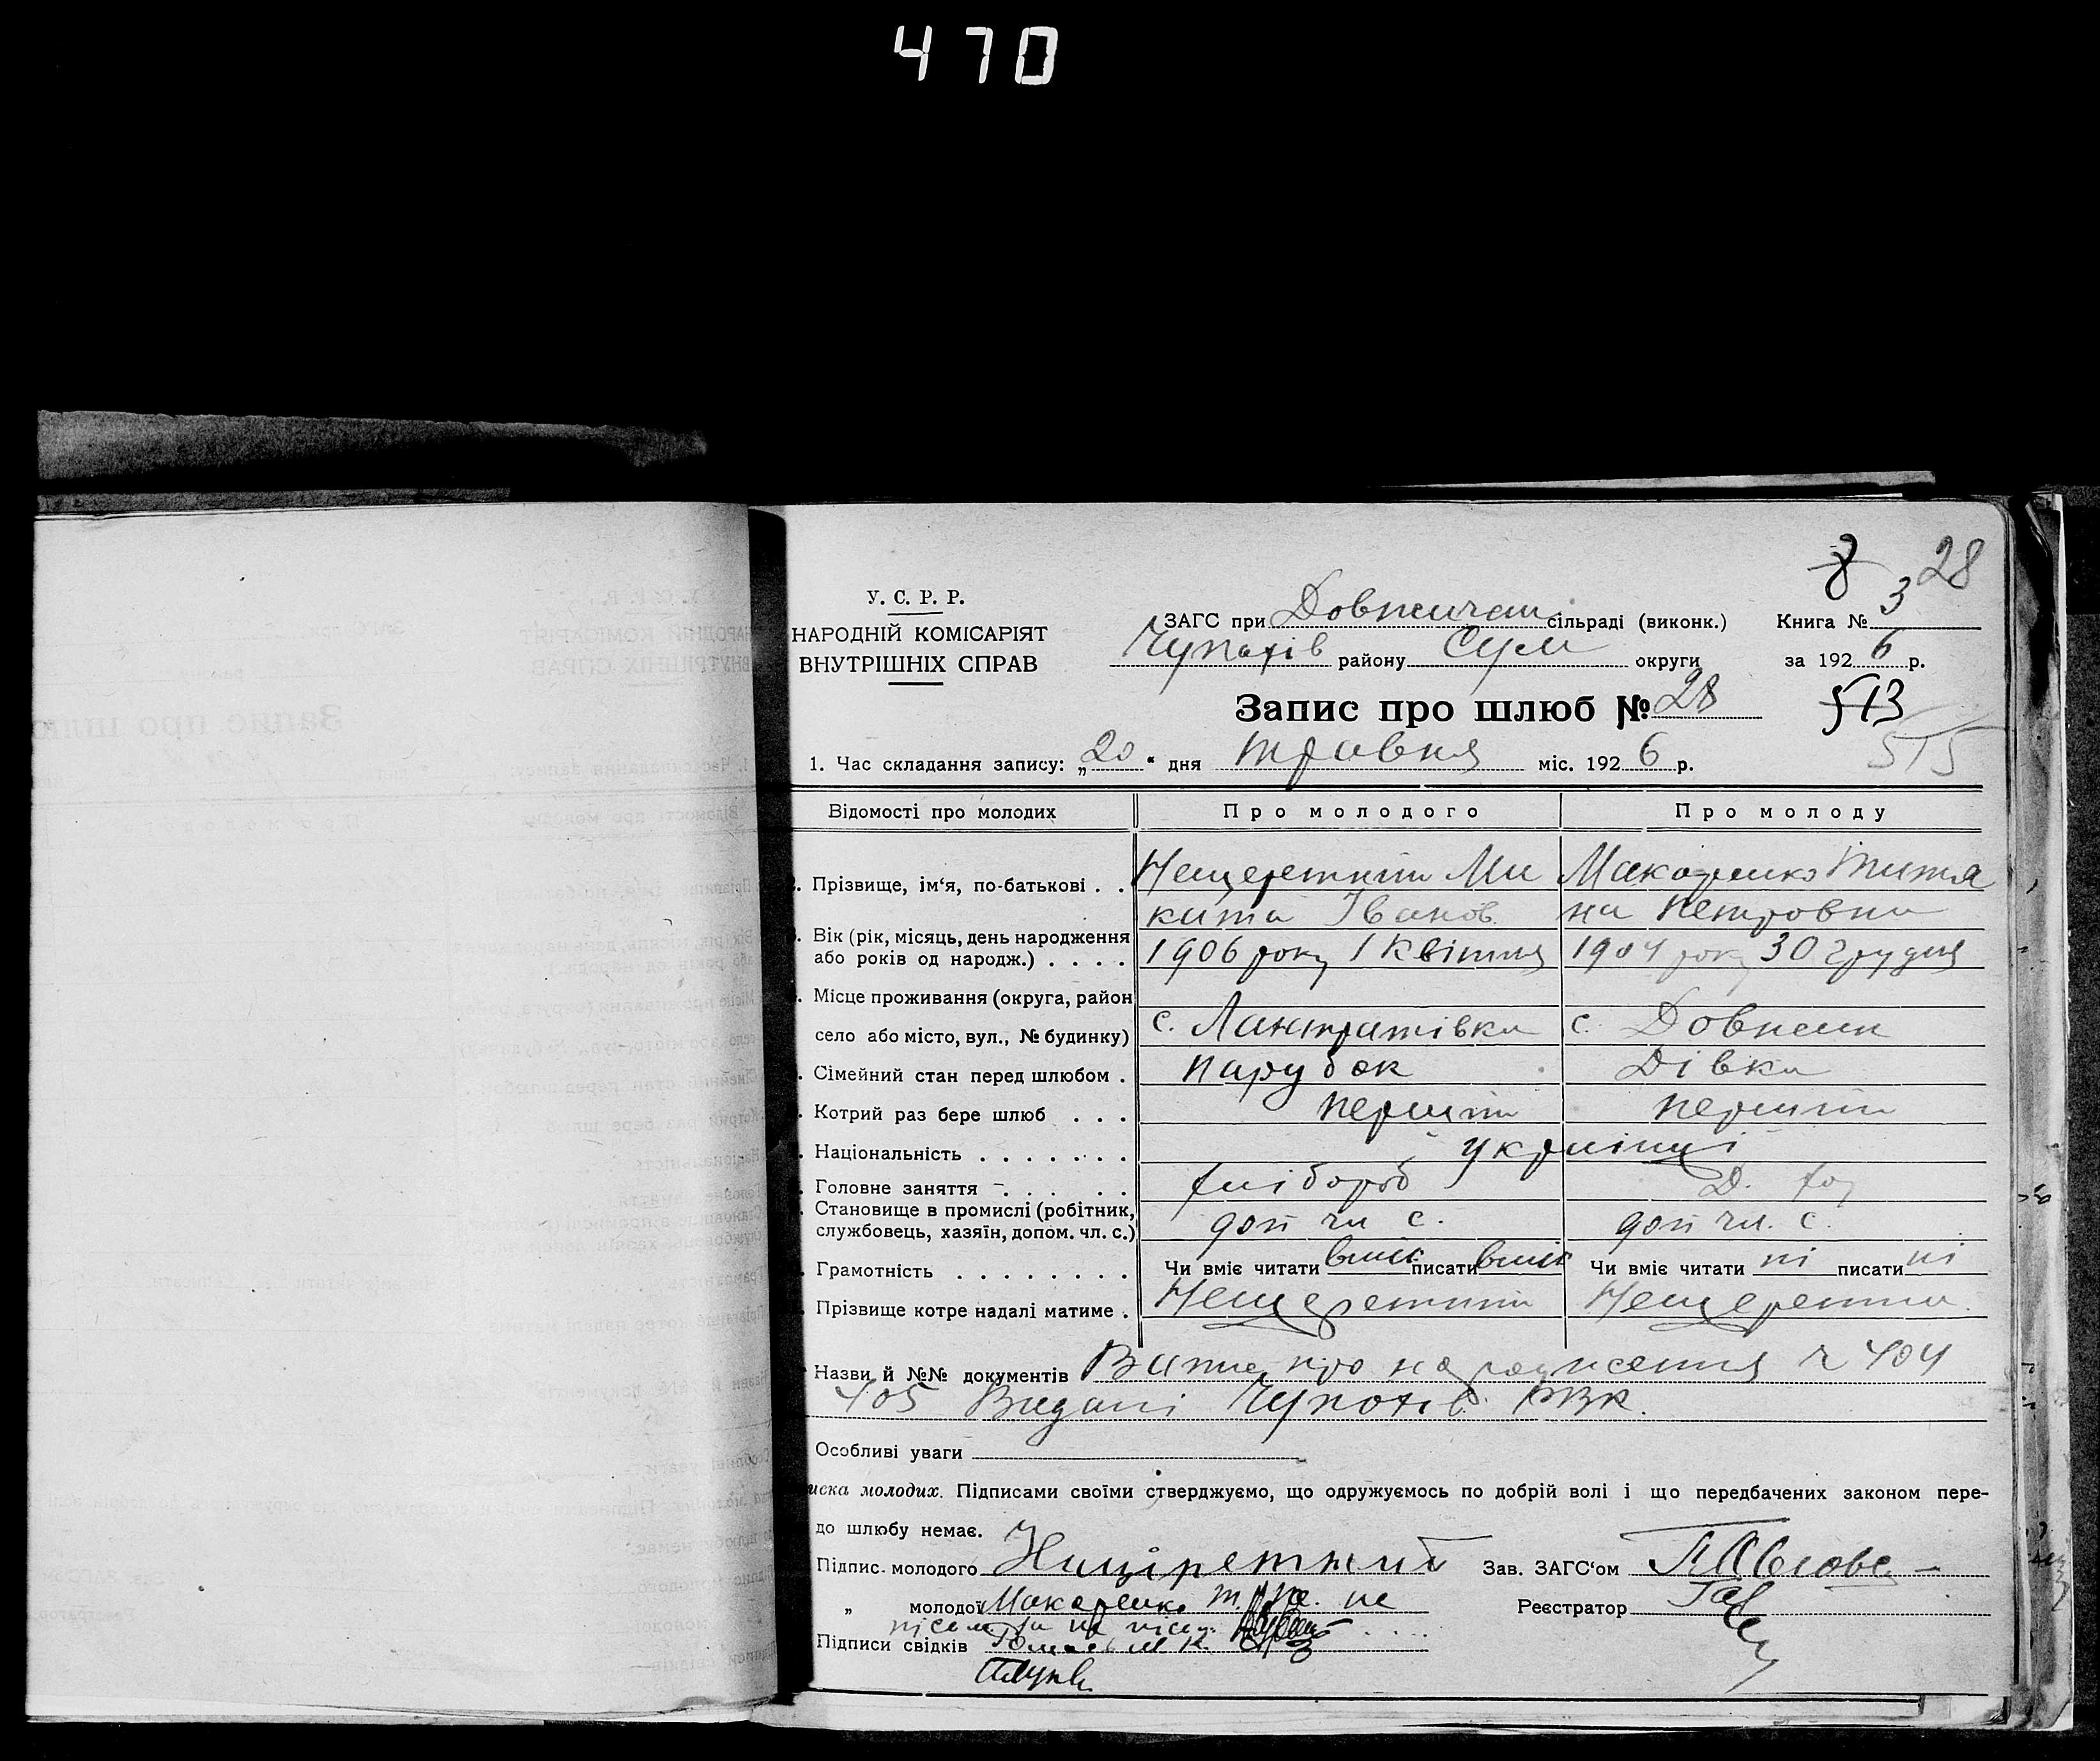 470
8 28
У. С. Р. Р.
НАРОДНІЙ КОМІСАРІЯТ
ВНУТРІШНІХ СПРАВ
ЗАГС при Довжичан сільраді (виконк.) Книга № 3
Чупахів району Сум округи за 1926 р.
Запис про шлюб № 28
513
515
1. Час складання запису: „20“ дня травня міс. 1926 р.
Відомості про молодих Про молодого Про молоду
Прізвище, ім‘я, по-батькові . . Нещеретний Ми Макаренко Титя
кита Іванов. на Петровна
Вік (рік, місяць, день народження
або років од народж.) . . . . 1906 року 1 Квітня 1904 року 30 Грудня
Місце проживання (округа, район
село або місто, вул., № будинку) с. Лантратівка с. Довжик
Сімейний стан перед шлюбом . парубок Дівка
Котрий раз бере шлюб . . . перший перший
Національність . . . . . . . українці
Головне заняття . . . . . хлібороб Д. гос
Становище в промислі (робітник,
службовець, хазяїн, допом. чл. с.) доп чл с. доп чл. с.
Грамотність . . . . . . . . Чи вміє читати вміє писати вміє Чи вміє читати ні писати ні
Прізвище котре надалі матиме . Нещеретний Нещеретна
Назви й №№ документів Витяг про народження ч 404
405 Видані Чупохів РВК.
Особливі уваги
иска молодих. Підписами своїми стверджуємо, що одружуємось по добрій волі і що передбачених законом пере-
до шлюбу немає.
Підпис. молодого Ніщіретний Зав. ЗАГС‘ом
„ молодої Макаренко Т. не Реєстратор
Підписи свідків